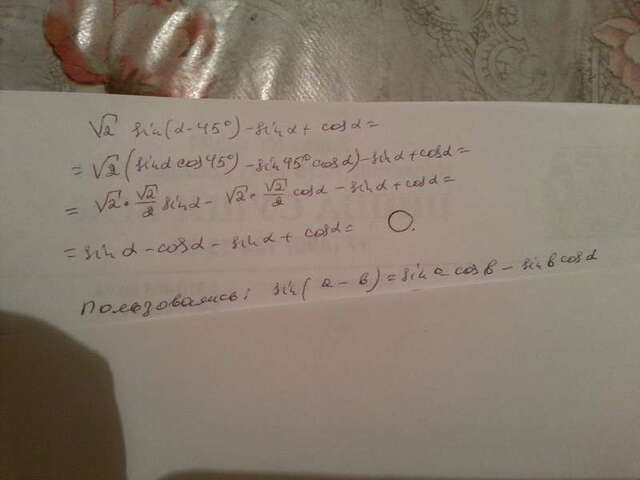 √2 sin(α-45°)-sinα+cosα=
=√2(sinαcos45°)-sin45°cosα)-sinα+cosα=
=√2·√2/2 sinα-√2·√2/2 cosα-sinα+cosα=
=sinα-cosα-sinα+cosα= 0.
Пользовались: sin(a-b)=sin a cos b-sin b cos α